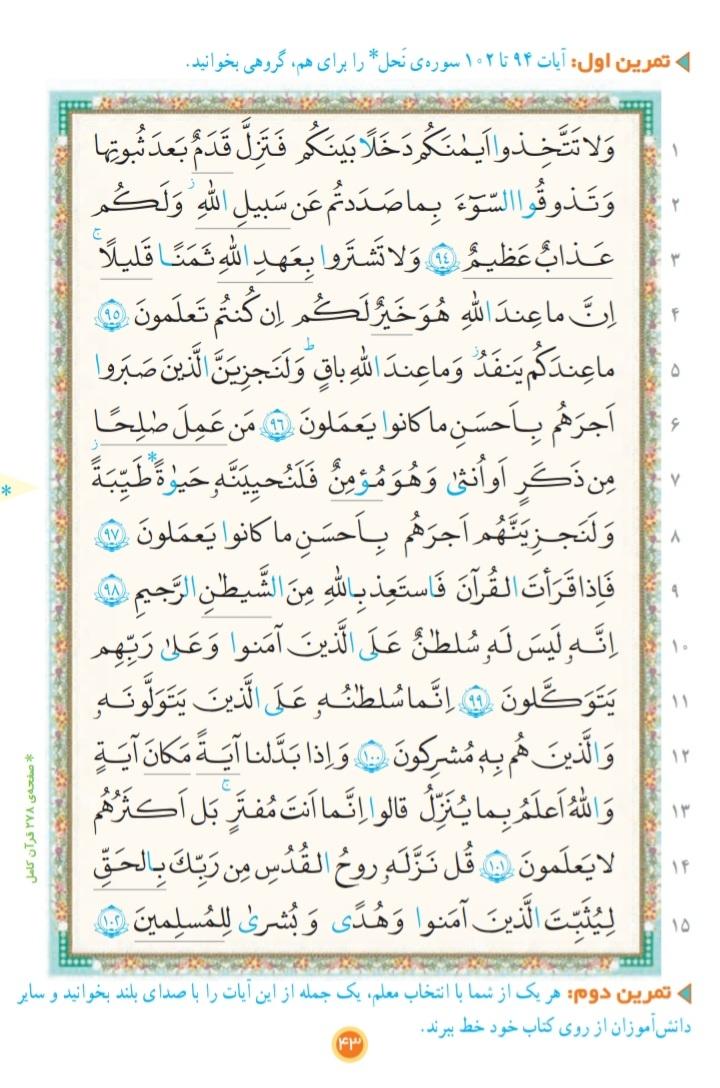 تمرین اول: آیات ۹۴ تا ۱۰۲ سوره‌ی نَحل* را برای هم، گروهی بخوانید.
۱ وَلا تَتَّخِذوا اَیمٰنَکُم دَخَلًا بَینَکُم فَتَزِلَّ قَدَمٌ بَعدَ ثُبوتِها
۲ وَ تَذوقُوا السّوٓءَ بِما صَدَدتُم عَن سَبیلِ اللّٰهِ ز وَ لَکُم
۳ عَذابٌ عَظیمٌ ۹۴ وَ لا تَشتَروا بِعَهدِ اللّٰهِ ثَمَنًا قَلیلًا ج
۴ اِنَّ ما عِندَ اللّٰهِ هُوَ خَیرٌ لَکُم اِن کُنتُم تَعلَمونَ ۹۵
۵ ما عِندَکُم یَنفَدُ ز وَ ما عِندَ اللّٰهِ باقٍ ط وَ لَنَجزِیَنَّ الَّذینَ صَبَروا
۶ اَجرَهُم بِاَحسَنِ ما کانوا یَعمَلونَ ۹۶ مَن عَمِلَ صٰلِحًا
۷ مِن ذَکَرٍ اَو اُنثیٰ وَ هُوَ مُؤمِنٌ فَلَنُحیِیَنَّهٗ حَیٰوةً* طَیِّبَةً ز
۸ وَ لَنَجزِیَنَّهُم اَجرَهُم بِاَحسَنِ ما کانوا یَعمَلونَ ۹۷
۹ فَاِذا قَرَأتَ القُرآنَ فَاستَعِذ بِاللّٰهِ مِنَ الشَّیطٰنِ الرَّجیمِ ۹۸
۱۰ اِنَّهٗ لَیسَ لَهٗ سُلطٰنٌ عَلَی الَّذینَ آمَنوا وَ عَلیٰ رَبِّهِم
۱۱ یَتَوَکَّلونَ ۹۹ اِنَّما سُلطٰنُهٗ عَلَی الَّذینَ یَتَوَلَّونَهٗ
۱۲ وَ الَّذینَ هُم بِهٖ مُشرِکونَ ۱۰۰ وَ اِذا بَدَّلنا آیَةً مَکانَ آیَةٍ
۱۳ وَ اللّٰهُ اَعلَمُ بِما یُنَزِّلُ قالوا اِنَّما اَنتَ مُفتَرٍ ج بَل اَکثَرُهُم
۱۴ لا یَعلَمونَ ۱۰۱ قُل نَزَّلَهٗ روحُ القُدُسِ مِن رَبِّکَ بِالحَقِّ
۱۵ لِیُثَبِّتَ الَّذینَ آمَنوا وَ هُدًی وَ بُشریٰ لِلمُسلِمینَ ۱۰۲
*
* صفحه‌ی ۲۷۸ قرآن کامل
تمرین دوم: هر یک از شما با انتخاب معلم، یک جمله از این آیات را با صدای بلند بخوانید و سایر
دانش‌آموزان از روی کتاب خود خط ببرند.
۴۳